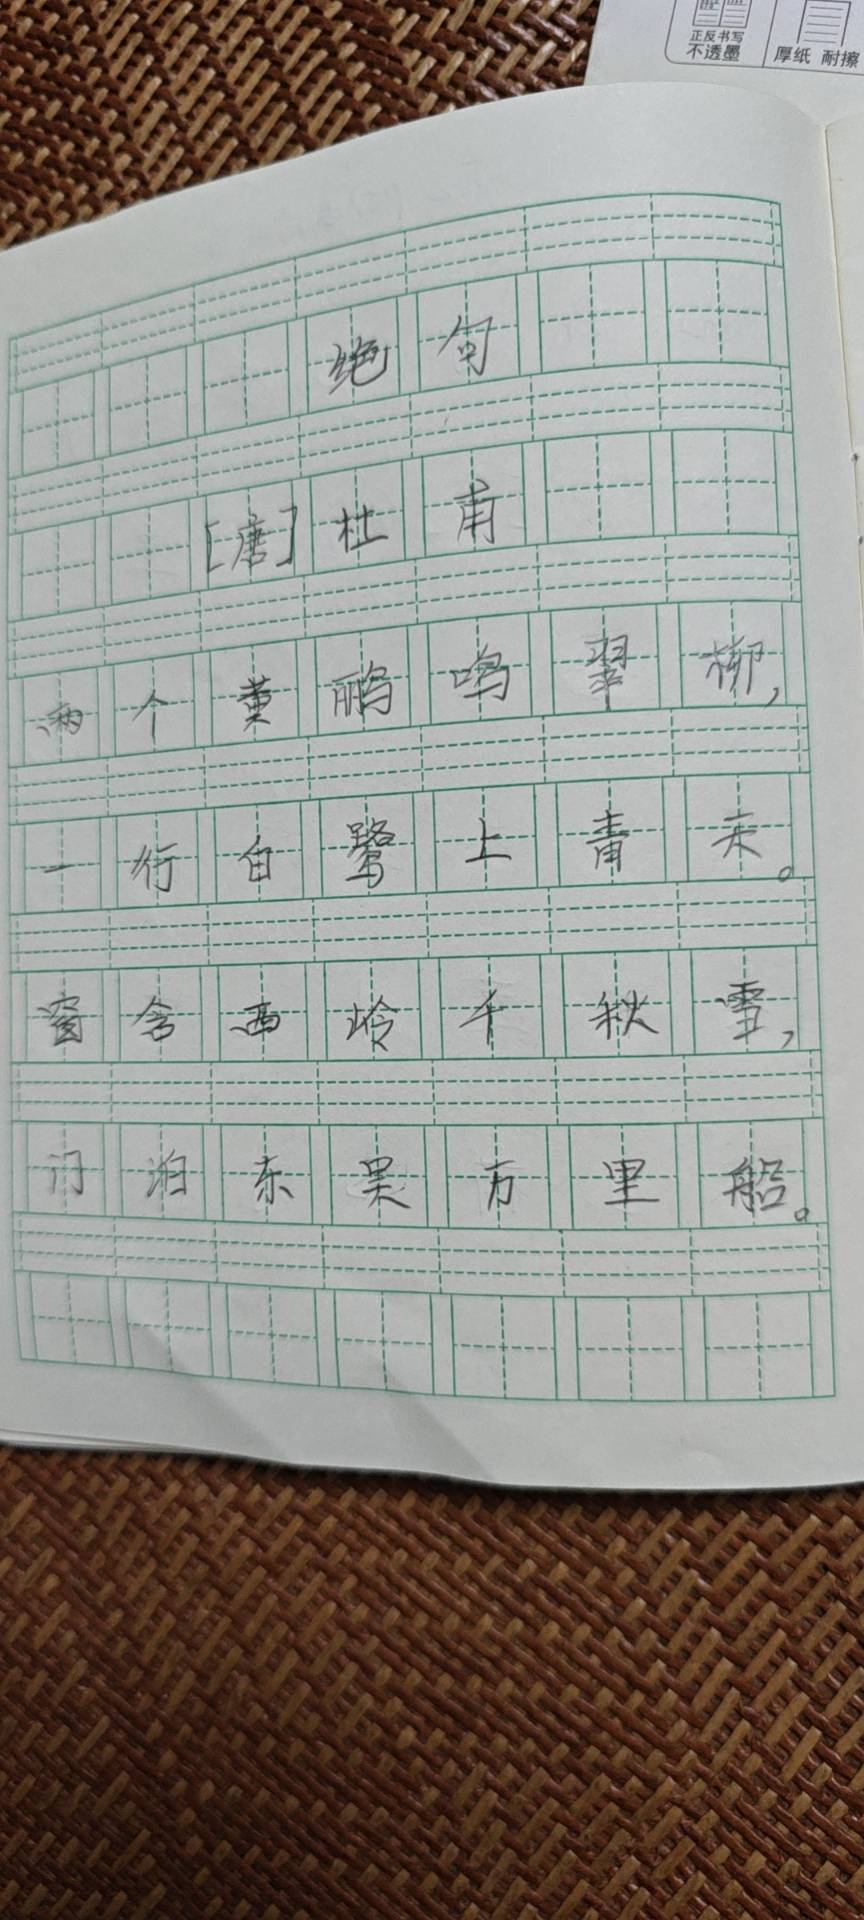 正反书写
不透墨
厚纸 耐擦
绝句
[唐]杜甫
两个黄鹂鸣翠柳,
一行白鹭上青天。
窗含西岭千秋雪,
门泊东吴万里船。